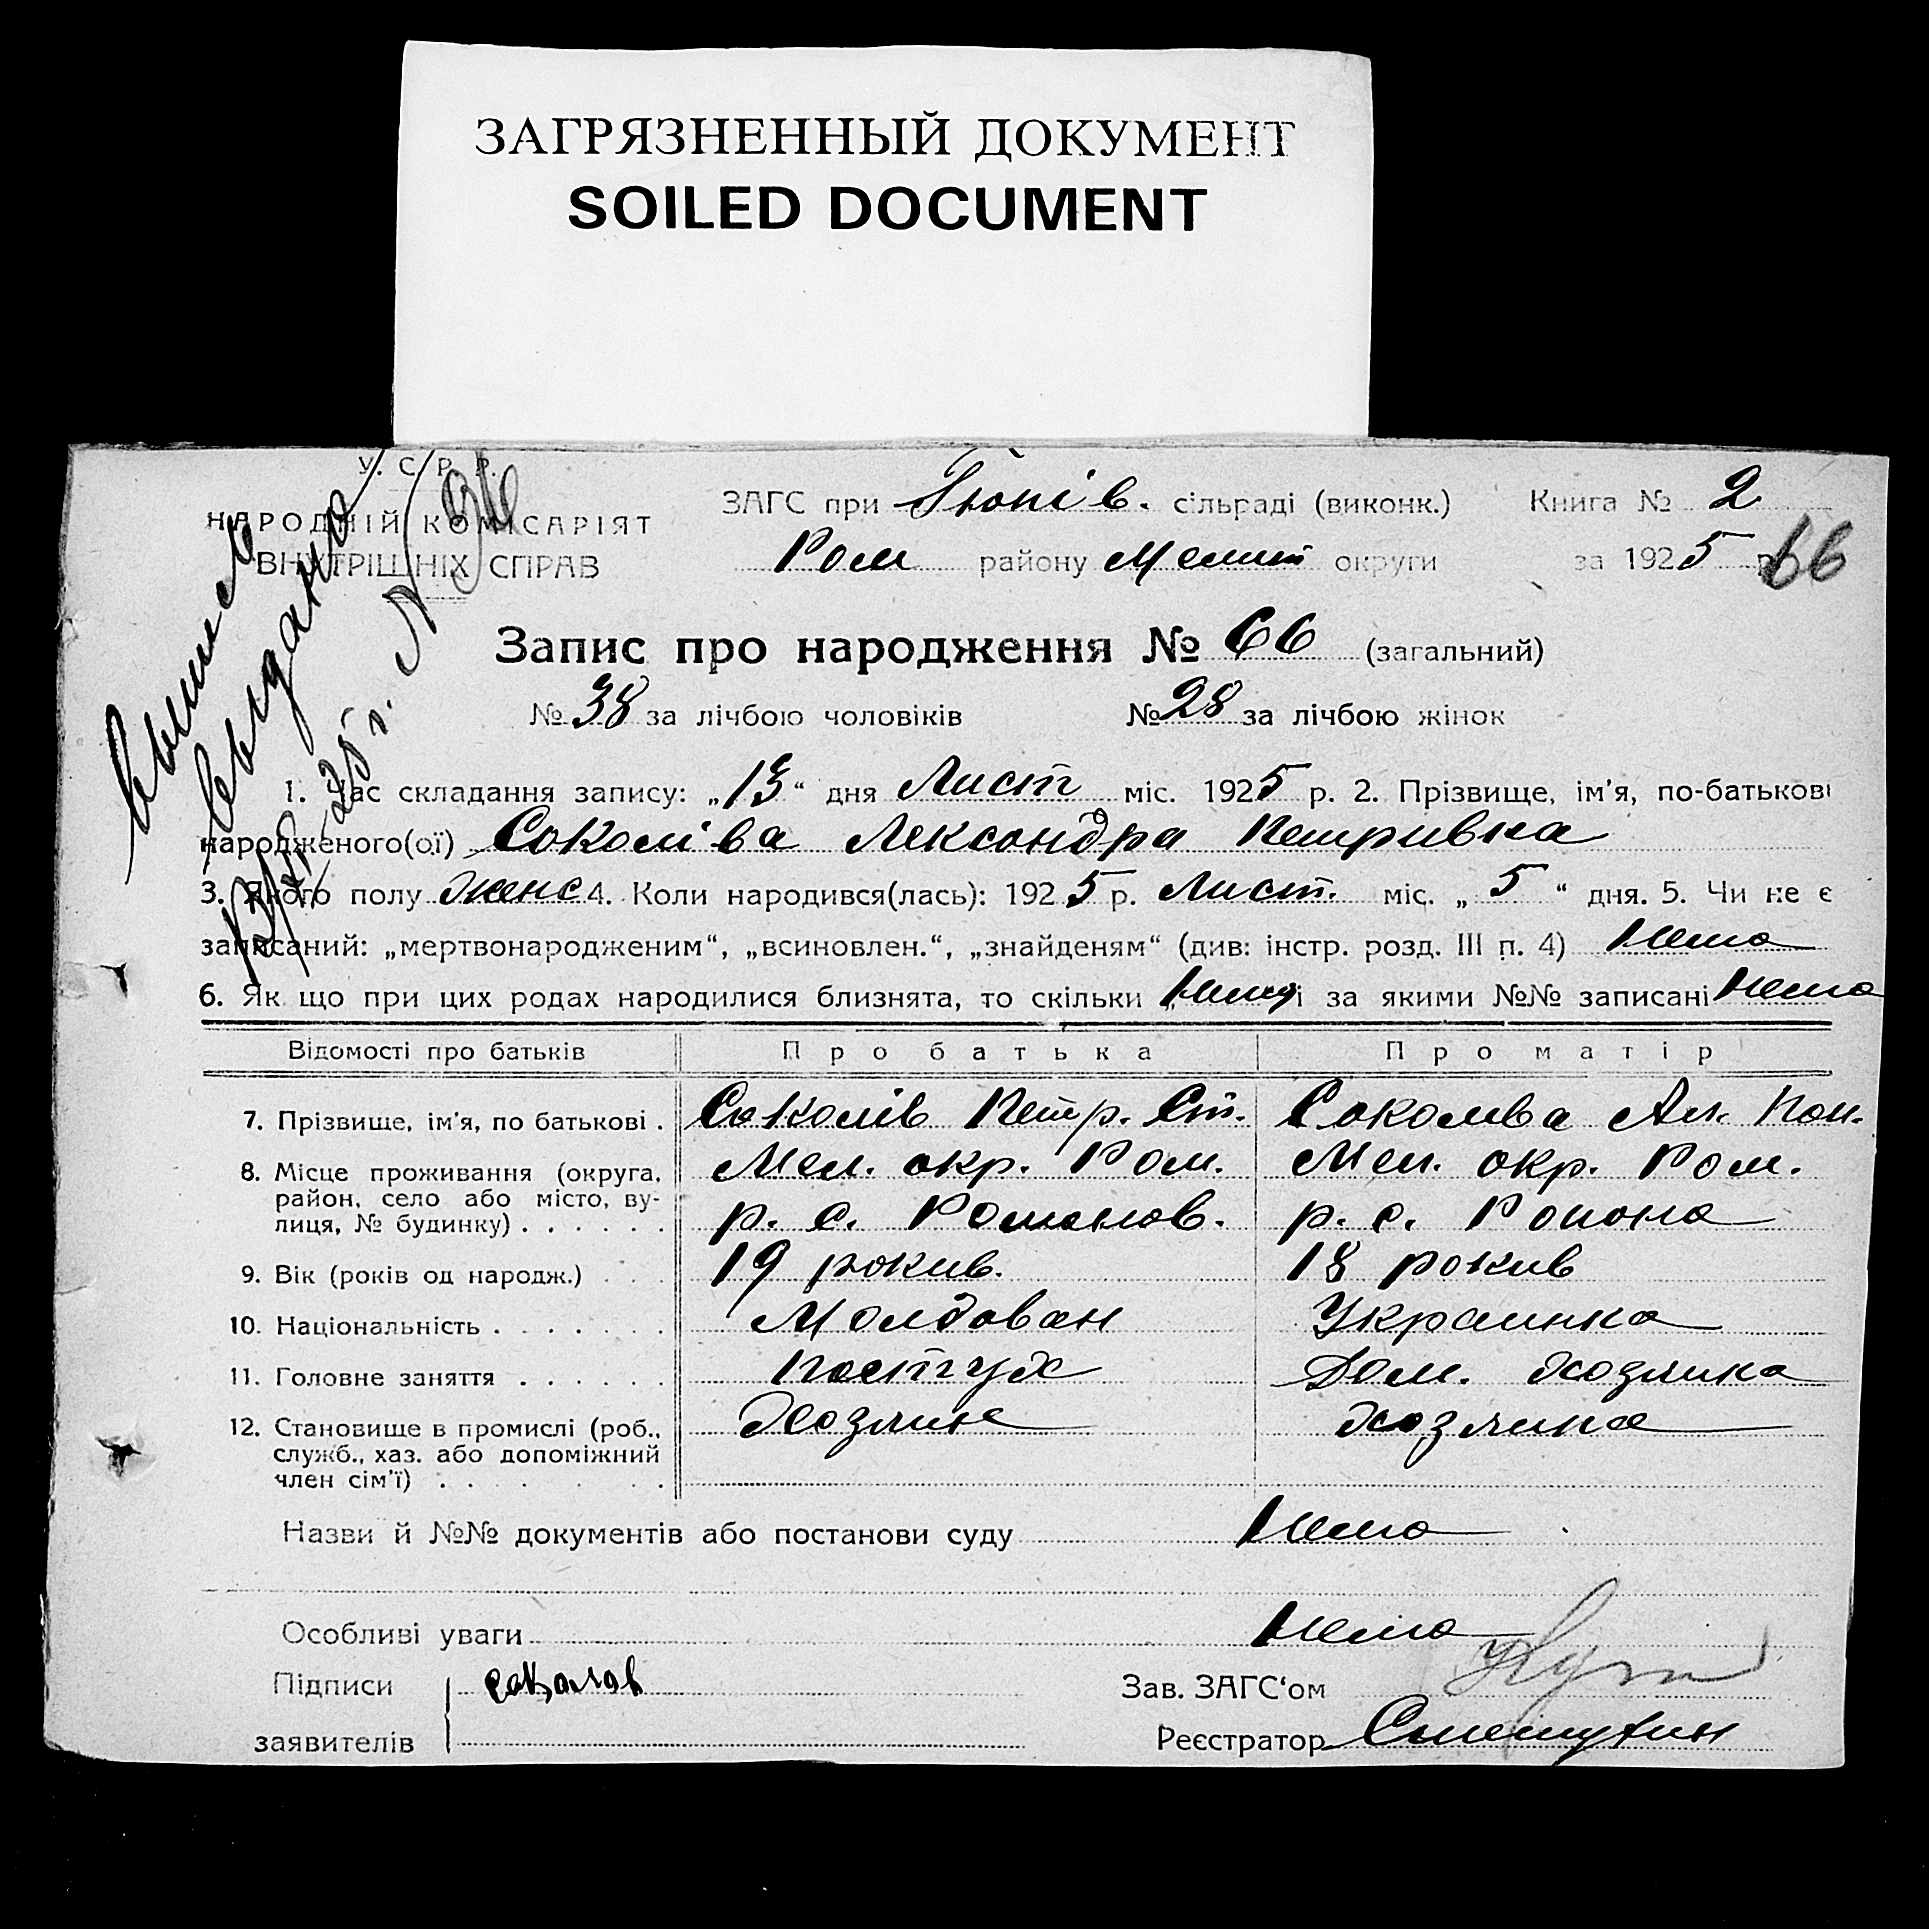 ЗАГРЯЗНЕННЫЙ ДОКУМЕНТ
SOILED DOCUMENT
У. С. Р. Р.
НАРОДНІЙ КОМІСАРІЯТ
ВНУТРІШНІХ СПРАВ
ЗАГС при сільраді (виконк.) Книга № 2
Ром району Мелит округи за 1925 р. 66
Запис про народження № 66 (загальний)
№ 38 за лічбою чоловіків № 28 за лічбою жінок
выпись
выдана
1. Час складання запису: „13“ дня Лист міс. 1925 р. 2. Прізвище, ім'я, по-батькові
народженого(ої) Соколіва Лександра Петривна
3. Якого полу женс 4. Коли народився(лась): 1925 р. Лист. міс. „5“ дня. 5. Чи не є
записаний: „мертвонародженим“, „всиновлен.“, „знайденям“ (див: інстр. розд. III п. 4) Нема
6. Як що при цих родах народилися близнята, то скільки Нема і за якими №№ записані Нема
Відомості про батьків Про батька Про матір
7. Прізвище, ім'я, по батькові . Соколів Петр. Ст. Соколива Ал. Пон.
8. Місце проживання (округа, Мел. окр. Ром. Мел. окр. Ром.
район, село або місто, ву-
лиця, № будинку) . . . . . . р. с. Романов. р. с.
9. Вік (років од народж.) . . . 19 рокив. 18 рокив
10. Національність . . . . . . . Молдован Украинка
11. Головне заняття . . . . . . Пастух Дом. хозяика
12. Становище в промислі (роб., Хозяин хозяика
служб., хаз. або допоміжний
член сім'ї) . . . . . . .
Назви й №№ документів або постанови суду Нема
Особливі уваги Нема
Підписи соколов Зав. ЗАГС‘ом
заявителів Реєстратор